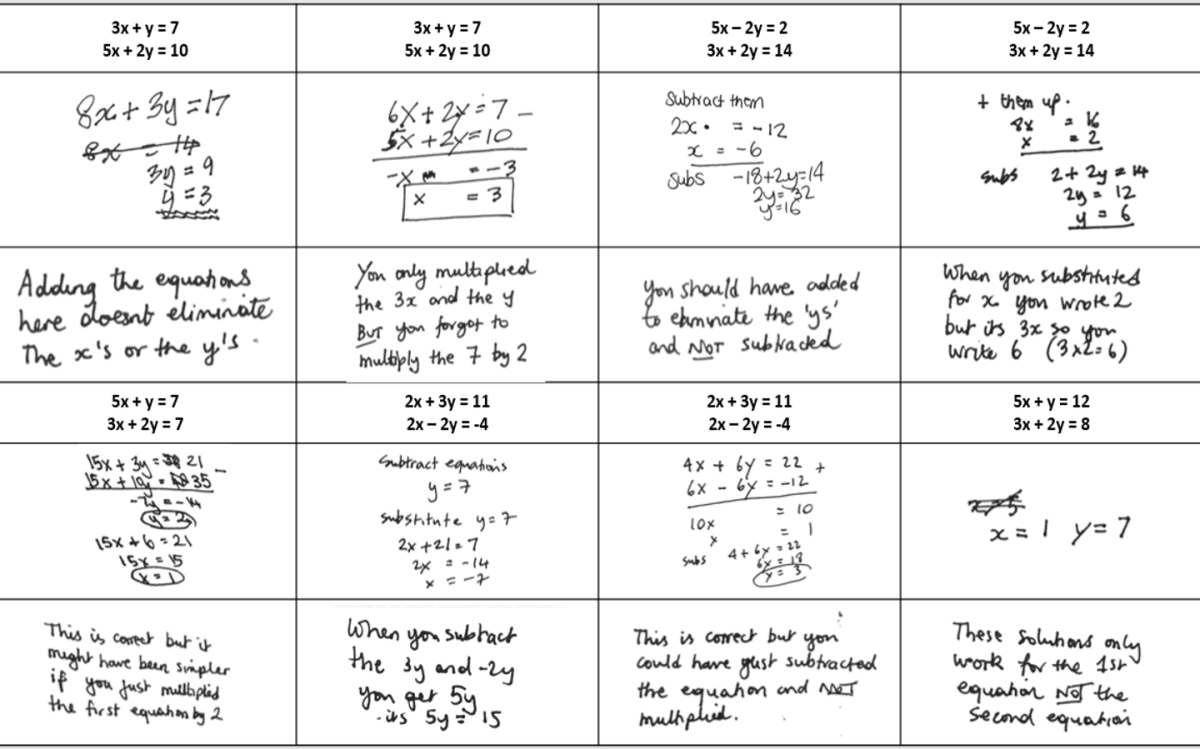 3x + y = 7
5x + 2y = 10
8x + 3y = 17
8x = 14
3y = 9
y = 3
Adding the equations
here doesnt eliminate
The x's or the y's.
3x + y = 7
5x + 2y = 10
6x + 2y = 7 -
5x + 2y = 10
-x = -3
x = 3
You only multiplied
the 3x and the y
BUT you forgot to
multiply the 7 by 2
5x – 2y = 2
3x + 2y = 14
Subtract them
2x = -12
x = -6
Subs -18+2y=14
2y = 32
y=16
you should have added
to elimnate the 'ys'
and NOT subtracted
5x – 2y = 2
3x + 2y = 14
+ them up.
8x = 16
x = 2
subs 2 + 2y = 14
2y = 12
y = 6
When you substituted
for x you wrote 2
but its 3x so you
write 6 (3x2=6)
5x + y = 7
3x + 2y = 7
15x + 3y = 21 -
15x + 10y = 35
-7y = -14
y = 2
15x + 6 = 21
15x = 15
x = 1
This is correct but it
might have been simpler
if you just multiplied
the first equation by 2
2x + 3y = 11
2x – 2y = -4
Subtract equations
y = 7
substitute y = 7
2x + 21 = 7
2x = -14
x = -7
When you subtract
the 3y and -2y
you get 5y
its 5y = 15
2x + 3y = 11
2x – 2y = -4
4x + 6y = 22 +
6x - 6y = -12
10x = 10
x = 1
subs 4 + 6y = 22
6y = 18
y = 3
This is correct but you
could have just subtracted
the equation and NOT
multiplied.
5x + y = 12
3x + 2y = 8
x = 1 y = 7
These solutions only
work for the 1st
equation NOT the
second equation